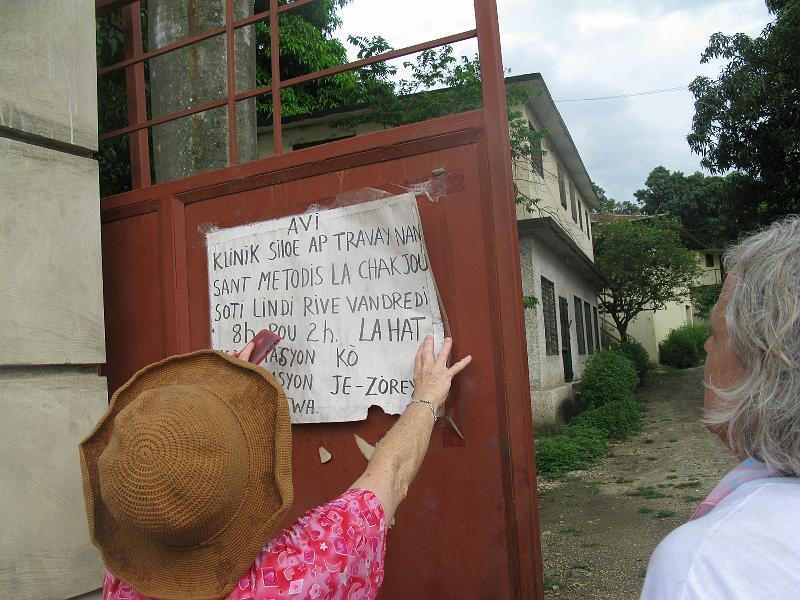 AVI
KLINIK SILOE AP TRAVAY NAN
SANT METODIS LA CHAK JOU
SOTI LINDI RIVE VANDREDI
8h POU 2h. LAHAT
KÒ
JE-ZÒREY